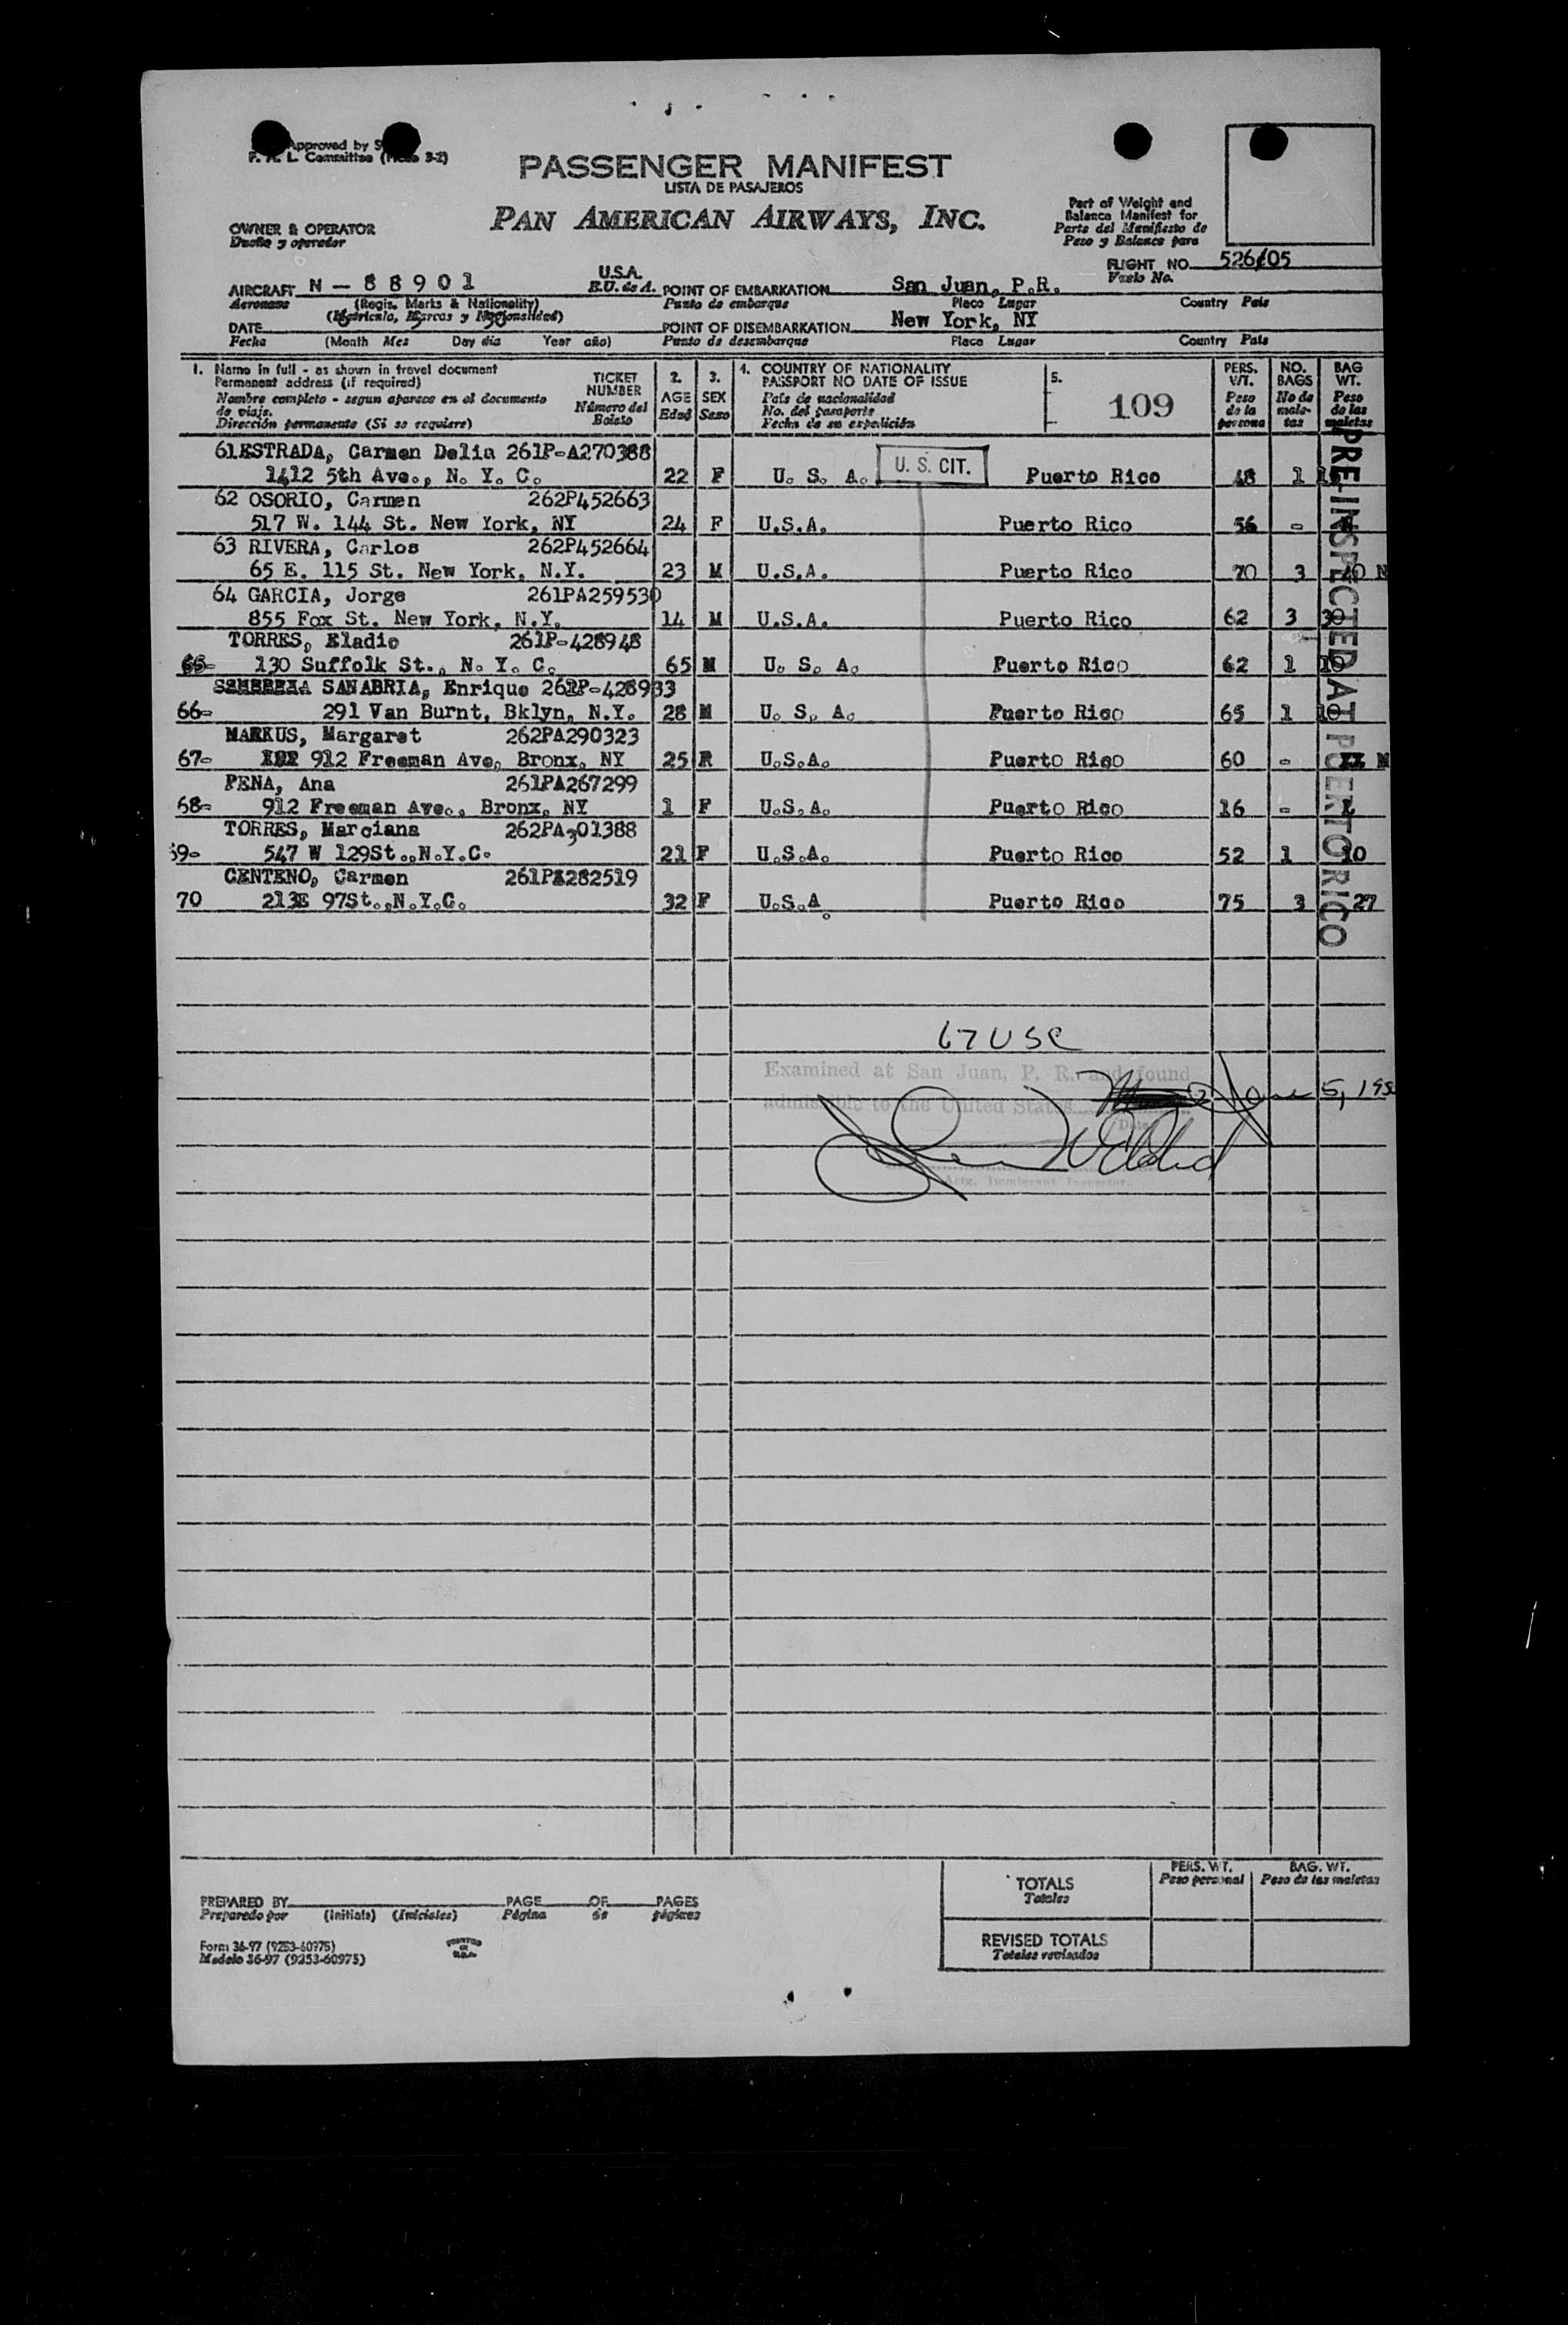 Approved by
F. A. L. Committee 3-2)
PASSENGER MANIFEST
LISTA DE PASAJEROS
PAN AMERICAN AIRWAYS, INC.
OWNER & OPERATOR
Dueño y operador
Part of Weight and
Balance Manifest for
Parte del Manifiesto de
Peso y Balance para
FLIGHT NO. 526/05
Vuelo No.
AIRCRAFT N - 88901
Aeronave
(Regis. Marks & Nationality)
(Matricula, Marcas y Nacionalidad)
U.S.A.
E.U. de A.
POINT OF EMBARKATION San Juan, P.R.
Punto de embarque Place Lugar Country Pais
DATE
Fecha (Month Mes Day dia Year año)
POINT OF DISEMBARKATION New York, NY
Punto de desembarque Place Lugar Country Pais
1. Name in full - as shown in travel document
Permanent address (if required)
Nombre completo - segun aparece en el documento
de viaje.
Dirección permanente (Si se requiere)
TICKET
NUMBER
Número del
Boleto
2.
AGE
Edad
3.
SEX
Sexo
4. COUNTRY OF NATIONALITY
PASSPORT NO DATE OF ISSUE
País de nacionalidad
No. del pasaporte
Fecha de su expedición
5.
109
PERS.
WT.
Peso
de la
persona
NO.
BAGS
No de
male-
tas
BAG
WT.
Peso
de las
maletas
61 ESTRADA, Carmen Delia 261P-A270388
1412 5th Ave., N. Y. C. 22 F U. S. A. U. S. CIT. Puerto Rico 48 1
62 OSORIO, Carmen 262P452663
517 W. 144 St. New York, NY 24 F U.S.A. Puerto Rico 56 -
63 RIVERA, Carlos 262P452664
65 E. 115 St. New York, N.Y. 23 M U.S.A. Puerto Rico 70 3 40 N
64 GARCIA, Jorge 261PA259530
855 Fox St. New York, N.Y. 14 M U.S.A. Puerto Rico 62 3 30
TORRES, Eladio 261P-428948
65- 130 Suffolk St., N. Y. C. 65 M U. S. A. Puerto Rico 62 1 10
SANABRIA, Enrique 261P-428933
66- 291 Van Burnt, Bklyn, N.Y. 28 M U. S. A. Puerto Rico 65 1 10
MARKUS, Margaret 262PA290323
67- 912 Freeman Ave, Bronx, NY 25 F U.S.A. Puerto Rico 60 -
PENA, Ana 261PA267299
68- 912 Freeman Ave., Bronx, NY 1 F U.S.A. Puerto Rico 16 -
TORRES, Marciana 262PA301388
69- 547 W 129St.,N.Y.C. 21 F U.S.A. Puerto Rico 52 1 10
CENTENO, Carmen 261PA282519
70 213E 97St.,N.Y.C. 32 F U.S.A. Puerto Rico 75 3 27
PRE-INSPECTED AT PUERTO RICO
67 USC
Examined at San Juan, P. R. and found
admissible to the United States June 5, 195
(Date)
Actg. Immigrant Inspector.
TOTALS
Totales
PERS. WT.
Peso personal
BAG. WT.
Peso de las maletas
REVISED TOTALS
Totales revisados
PREPARED BY PAGE OF PAGES
Preparado por (Initials) (Iniciales) Página de páginas
Form 36-97 (9253-60975)
Modelo 36-97 (9253-60975)
PRINTED
IN
U.S.A.